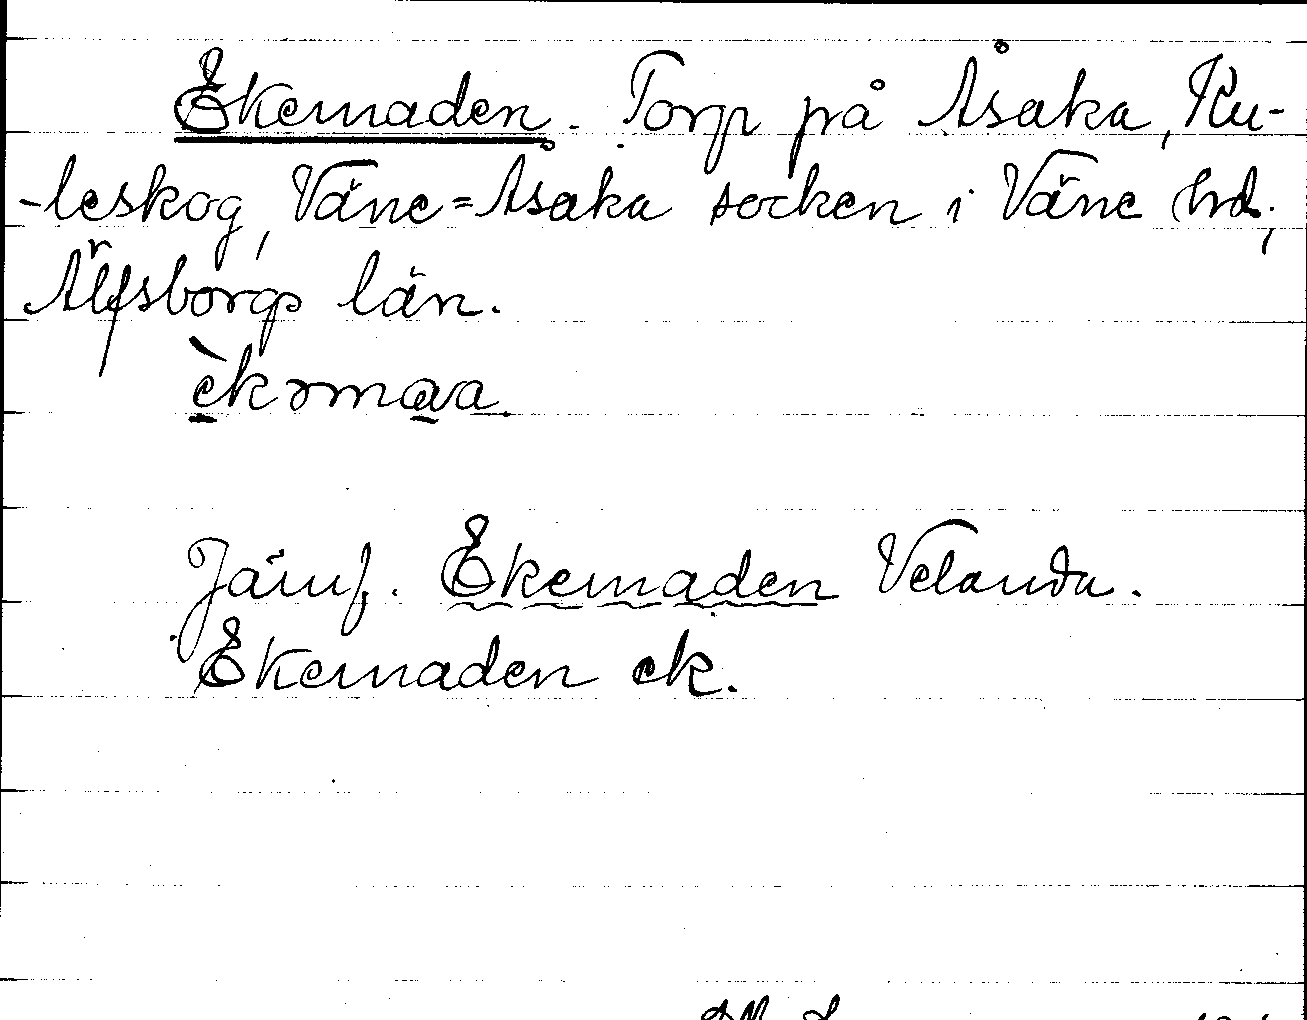 Ekemaden. Torp på Åsaka, Ku-
-leskog, Väne=Åsaka socken i Väne hd;
Älfsborgs län.
èkəmava.
Jämf. Ekemaden Velanda.
Ekemaden ek.